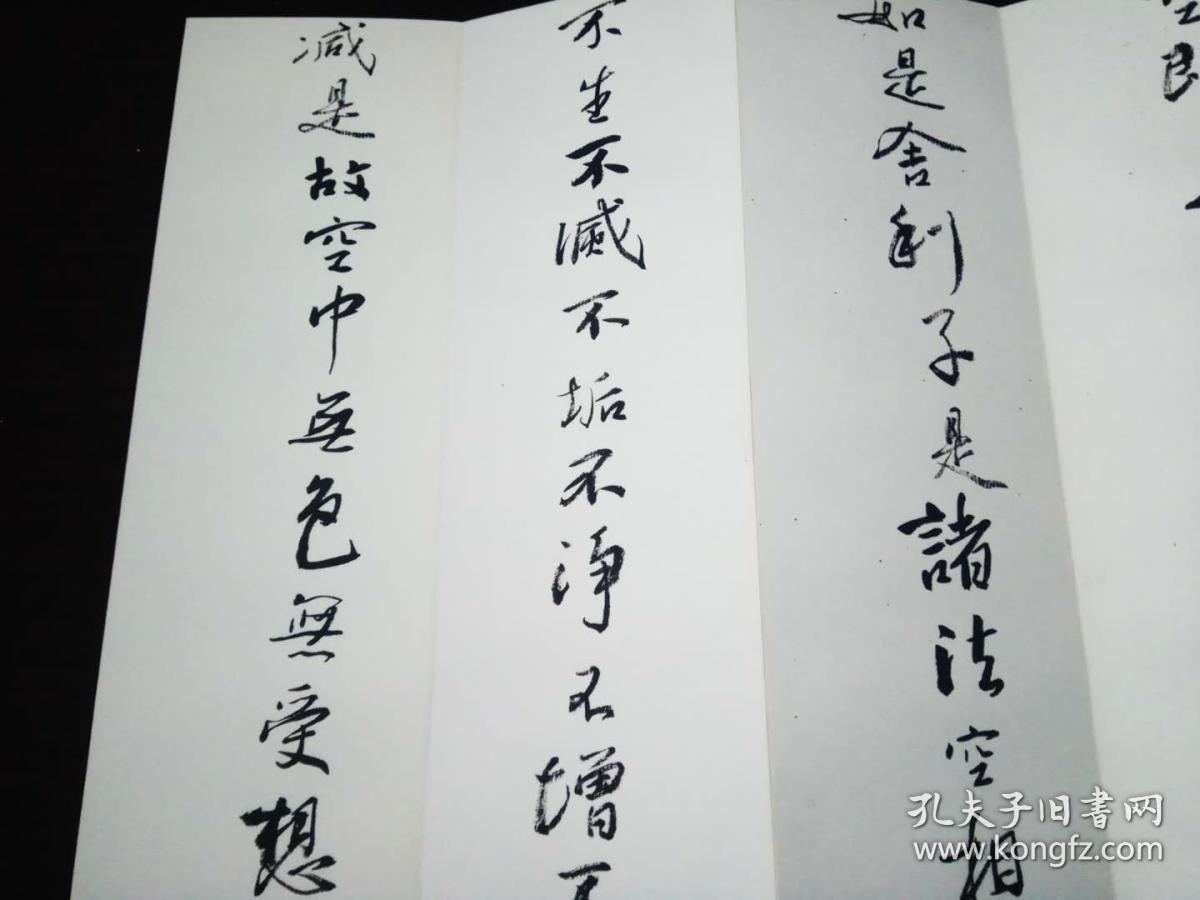 如是舍利子是諸法空相
不生不滅不垢不淨不增不
減是故空中無色無受想
孔夫子旧书网
www.kongfz.com